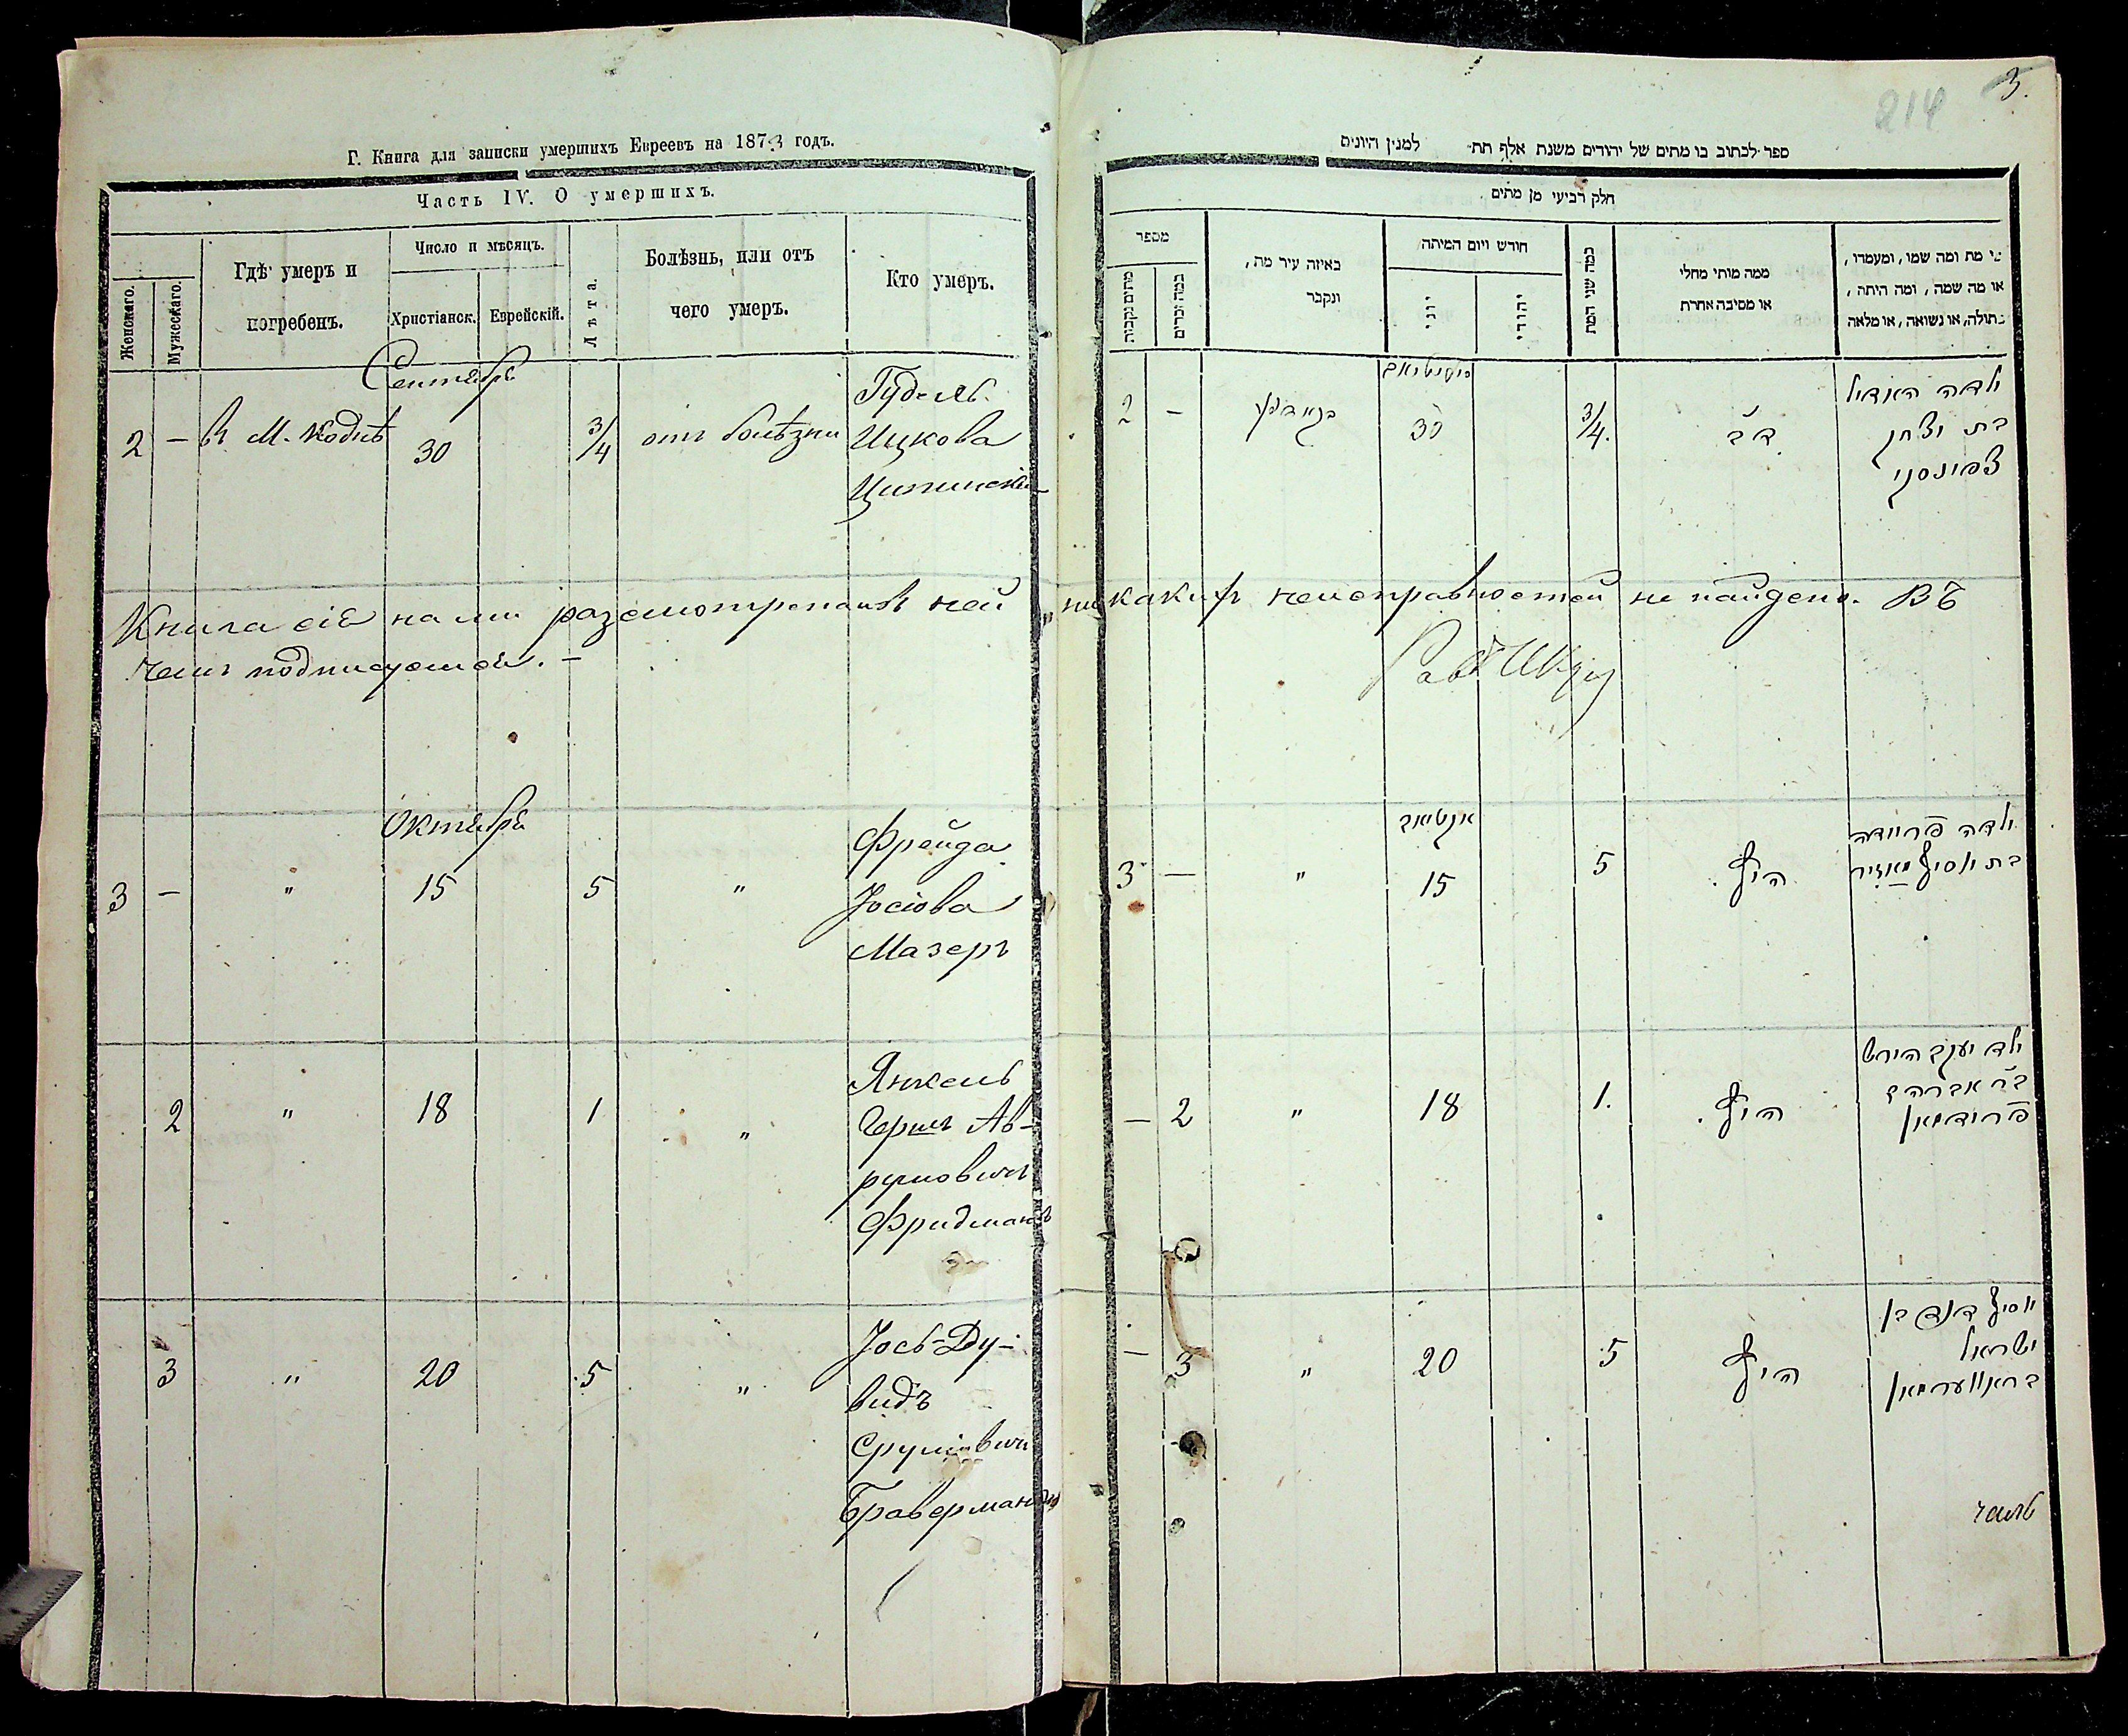 Г. Книга для записки умершихъ Евреевъ на 1873 годъ.
Часть IV. О умершихъ.
Женскаго.
Мужескаго.
Гдѣ умеръ и
погребенъ.
Число и мѣсяцъ.
Христіанск.
Еврейскій.
Лѣта.
Болѣзнь, или отъ
чего умеръ.
Кто умеръ.
Сентябрь
2 — въ М. Коднѣ 30 3/4 отъ болѣзни
Гудель
Ицкова
Октября
3 — " 15 5 "
Фрейда
Іосіова
Мазеръ
2 " 18 1 "
Янкель
Гершъ Ав-
румовичъ
Фридманъ
3 " 20 5 "
Іось-Ду-
видъ
Сруліовичъ
Браверманъ
214
3.
ספר לכתוב בו מתים של יהודים משנת אלף תת למנין היונים
חלק רביעי מן מתים
מספר
מתים נקבות
כמה זכרים
באיזה עיר מת,
ונקבר
חודש ויום המיתה
יוני
יהודי
כמה שני המת
ממה מותי מחלי
או מסיבה אחרת
מי מת ומה שמו, ומעמדו,
או מה שמה, ומה היתה,
בתולה, או נשואה, או מלאה
2 — 30 3/4.
ילדה האדיל
בת יצחק
Книга сія нами разсмотрена и въ ней никакихъ неисправностей не найдено. Въ
чемъ подписуемся. —
אקטיאב
3 — " 15 5
ילדה פריידה
בת יוסיף מאזיר
— 2 " 18 1.
ילד יעקב הירש
ב"ר אברהם
פרידמאן
— 3 " 20 5
יוסיף דוד בן
ישראל
בראווערמאן